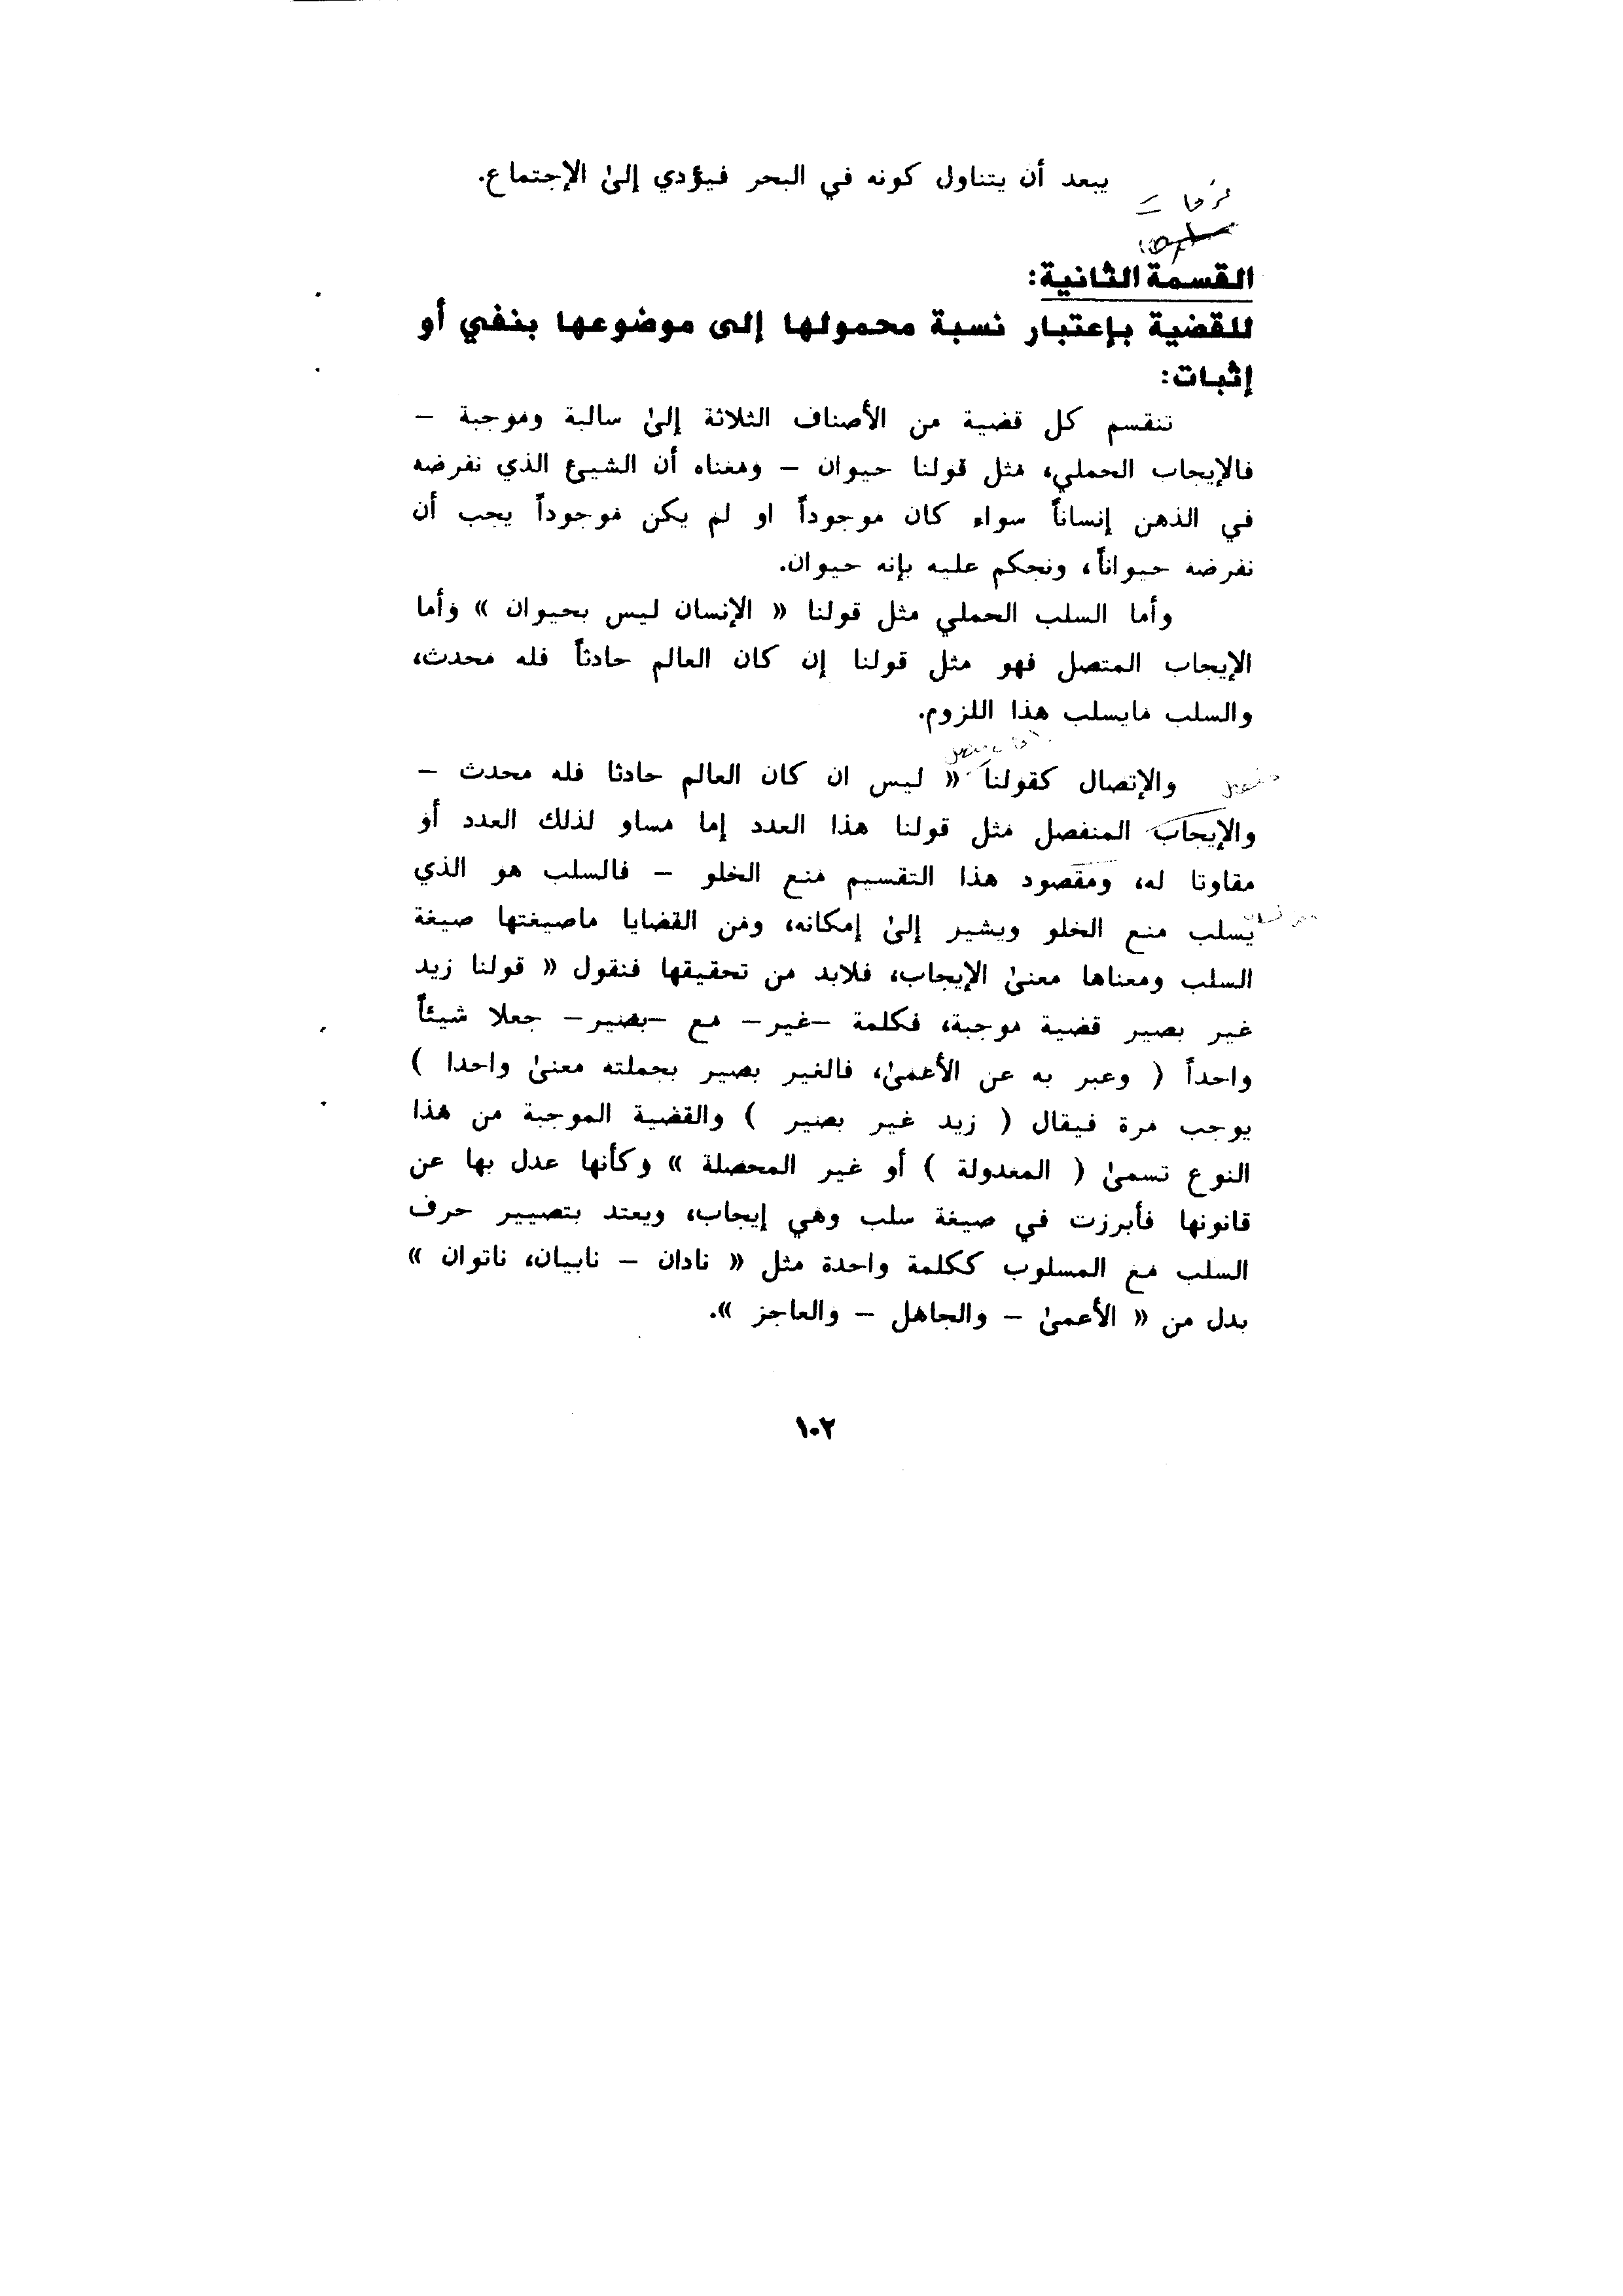 يبعد أن يتناول كونه في البحر فيؤدي إلىٰ الإجتماع.
القسمة الثانية:
للقضية بإعتبار نسبة محمولها إلى موضوعها بنفي أو
إثبات:
تنقسم كل قضية من الأصناف الثلاثة إلىٰ سالبة وموجبة –
فالإيجاب الحملي، مثل قولنا حيوان – ومعناه أن الشيئ الذي نفرضه
في الذهن إنساناً سواء كان موجوداً او لم يكن موجوداً يجب أن
نفرضه حيواناً، ونحكم عليه بإنه حيوان.
وأما السلب الحملي مثل قولنا « الإنسان ليس بحيوان » وأما
الإيجاب المتصل فهو مثل قولنا إن كان العالم حادثاً فله محدث،
والسلب مايسلب هذا اللزوم.
والإتصال كقولنا « ليس ان كان العالم حادثا فله محدث –
والإيجاب المنفصل مثل قولنا هذا العدد إما مساو لذلك العدد أو
مقاوتا له، ومقصود هذا التقسيم منع الخلو – فالسلب هو الذي
يسلب منع الخلو ويشير إلىٰ إمكانه، ومن القضايا ماصيغتها صيغة
السلب ومعناها معنىٰ الإيجاب، فلابد من تحقيقها فنقول « قولنا زيد
غير بصير قضية موجبة، فكلمة –غير– مع –بصير– جعلا شيئاً
واحداً ( وعبر به عن الأعمىٰ، فالغير بصير بجملته معنىٰ واحدا )
يوجب مرة فيقال ( زيد غير بصير ) والقضية الموجبة من هذا
النوع تسمىٰ ( المعدولة ) أو غير المحصلة » وكأنها عدل بها عن
قانونها فأبرزت في صيغة سلب وهي إيجاب، ويعتد بتصيير حرف
السلب مع المسلوب ككلمة واحدة مثل « نادان – نابيان، ناتوان »
بدل من « الأعمىٰ – والجاهل – والعاجز ».
١٠٢